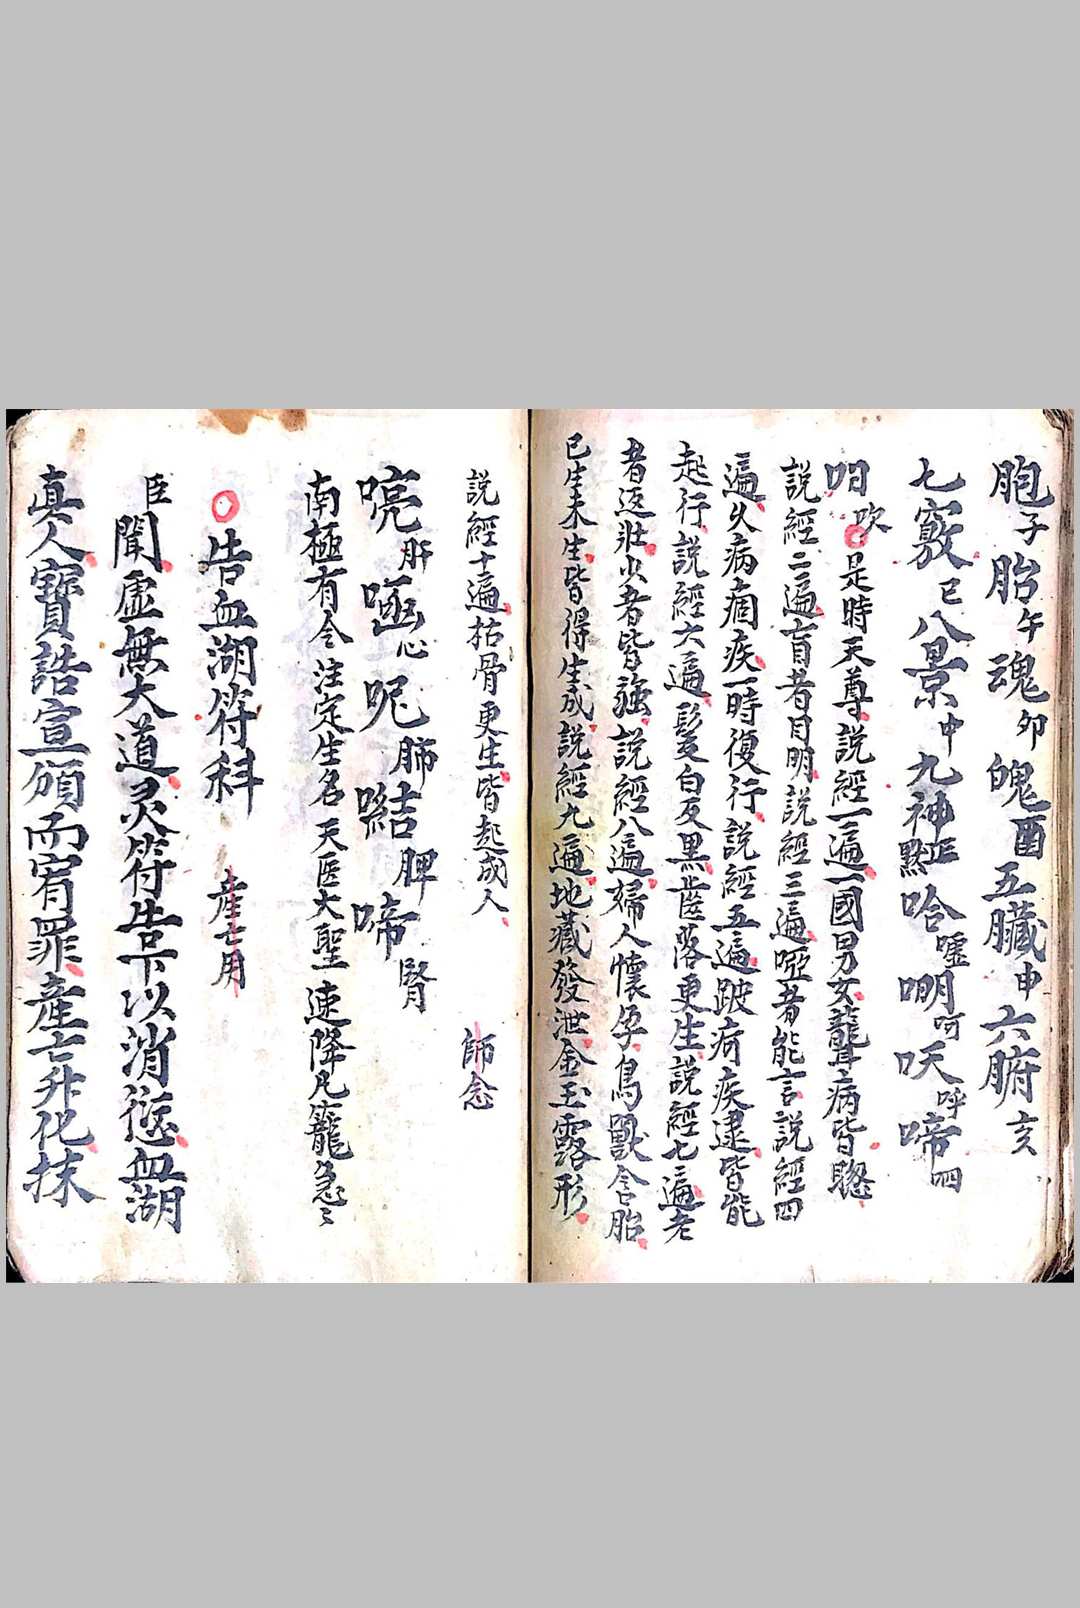 胞子胎午魂卯魄酉五臟申六腑亥
七竅巳八景中九神正默哈噓㗃呵呋呼啼呬
呬吹○是時天尊說經一遍一國男女聾病皆聰
說經二遍盲者目明說經三遍啞者能言說經四
遍久病痼疾一時復行說經五遍跛疴疾逮皆能
起行說經六遍髮白反黑齒落更生說經七遍老
者返壯少者皆強說經八遍婦人懷孕鳥獸含胎
已生未生皆得生成說經九遍地藏發泄金玉露形
說經十遍枯骨更生皆起成人 師念
喨肝心呢肺脾啼腎
南極有令注定生名天医大聖速降凡籠急〻
○告血湖符科 産亡用
臣聞虛無大道灵符告下以消愆血湖
真人寶誥宣頒而宥罪産亡升化抹